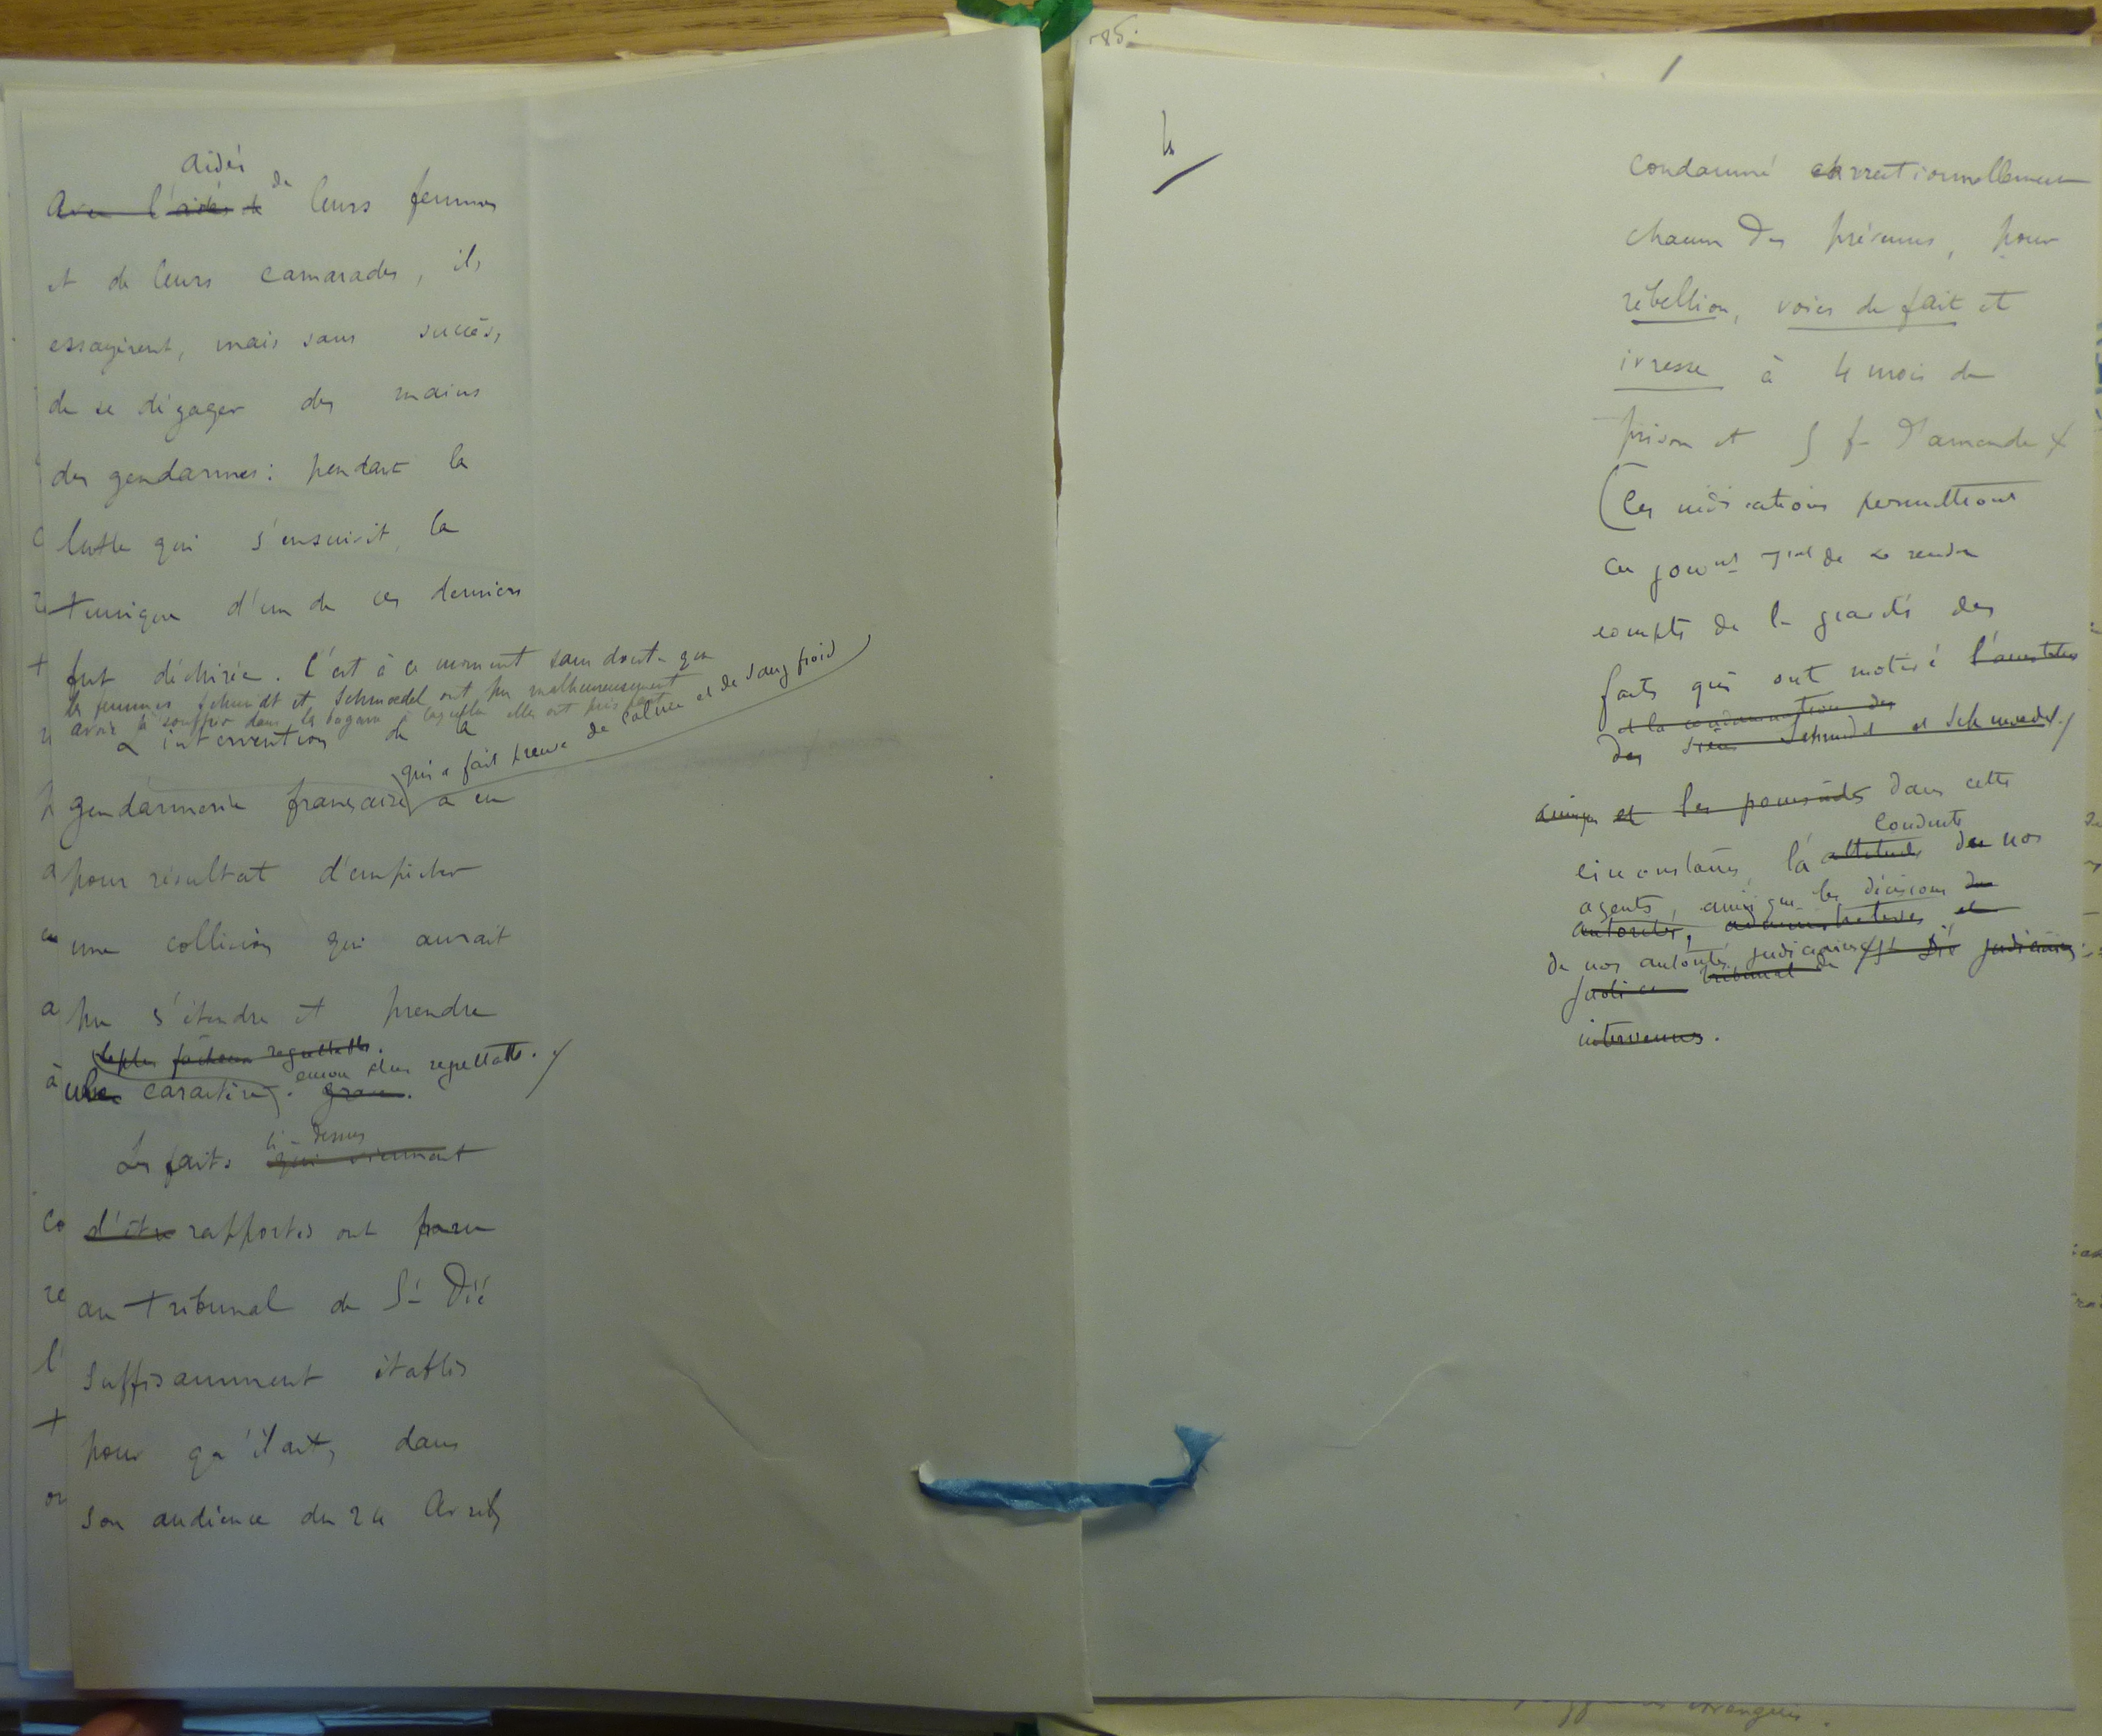 aidés de
Avec l'aide de leurs femmes
et de leurs camarades, ils
essayèrent, mais sans succès,
de se dégager des mains
des gendarmes : pendant la
lutte qui s'ensuivit, la
tunique d'un de ces derniers
fut déchirée. C'est à ce moment sans doute que
les femmes Schmidt et Schmoedel ont pu malheureusement
avoir à souffrir dans la bagarre à laquelle elles ont pris part
L'intervention de la
qui a fait preuve de calme et de sang froid
gendarmerie française a eu
pour résultat d'empêcher
une collision qui aurait
pu s'étendre et prendre
le plus fâcheux regrettable.
encore plus regrettable.
un caractère. grave.
ci-dessus
Les faits qui viennent
d'être rapportés ont paru
au tribunal de St Dié
suffisamment établis
pour qu'il ait, dans
son audience du 24 Avril,
185.
4
condamné correctionnellement
chacun des prévenus, pour
rébellion, voies de fait et
ivresse à 4 mois de
prison et 5 f. d'amende
(Ces indications permettront
au gouvnt de se rendre
compte de la gravité des
faits qui ont motivé l'arrestation
et la condamnation des
des Schmidt et Schmoedel.
ainsi et les poursuites dans cette
conduite
circonstance, la attitude de nos
agents, ainsi que les décisions de
autorités, administratives et
de nos autorités judiciaires St Dié judiciaires
tribunal de
intervenues.
étrangères.